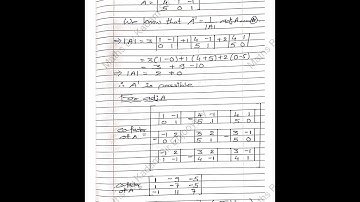 A = [ 4 1 -1
5 0 1 ]
We know that A⁻¹ = 1/|A| adj A
⇒ |A| = 3 |1 -1; 0 1| + 1 |4 -1; 5 1| + 2 |4 1; 5 0|
= 3(1-0) + 1(4+5) + 2(0-5)
= 3 + 9 - 10
⇒ |A| = 2 ≠ 0
∴ A⁻¹ is possible
For adj A
|1 -1; 0 1| - |4 -1; 5 1| |4 1; 5 0|
Cofactor of A = - |-1 2; 0 1| |3 2; 5 1| - |3 -1; 5 0|
|-1 2; 1 -1| - |3 2; 4 -1| |3 -1; 4 1|
Cofactor of A = [ 1 -9 -5
1 -7 -5
-1 11 7 ]